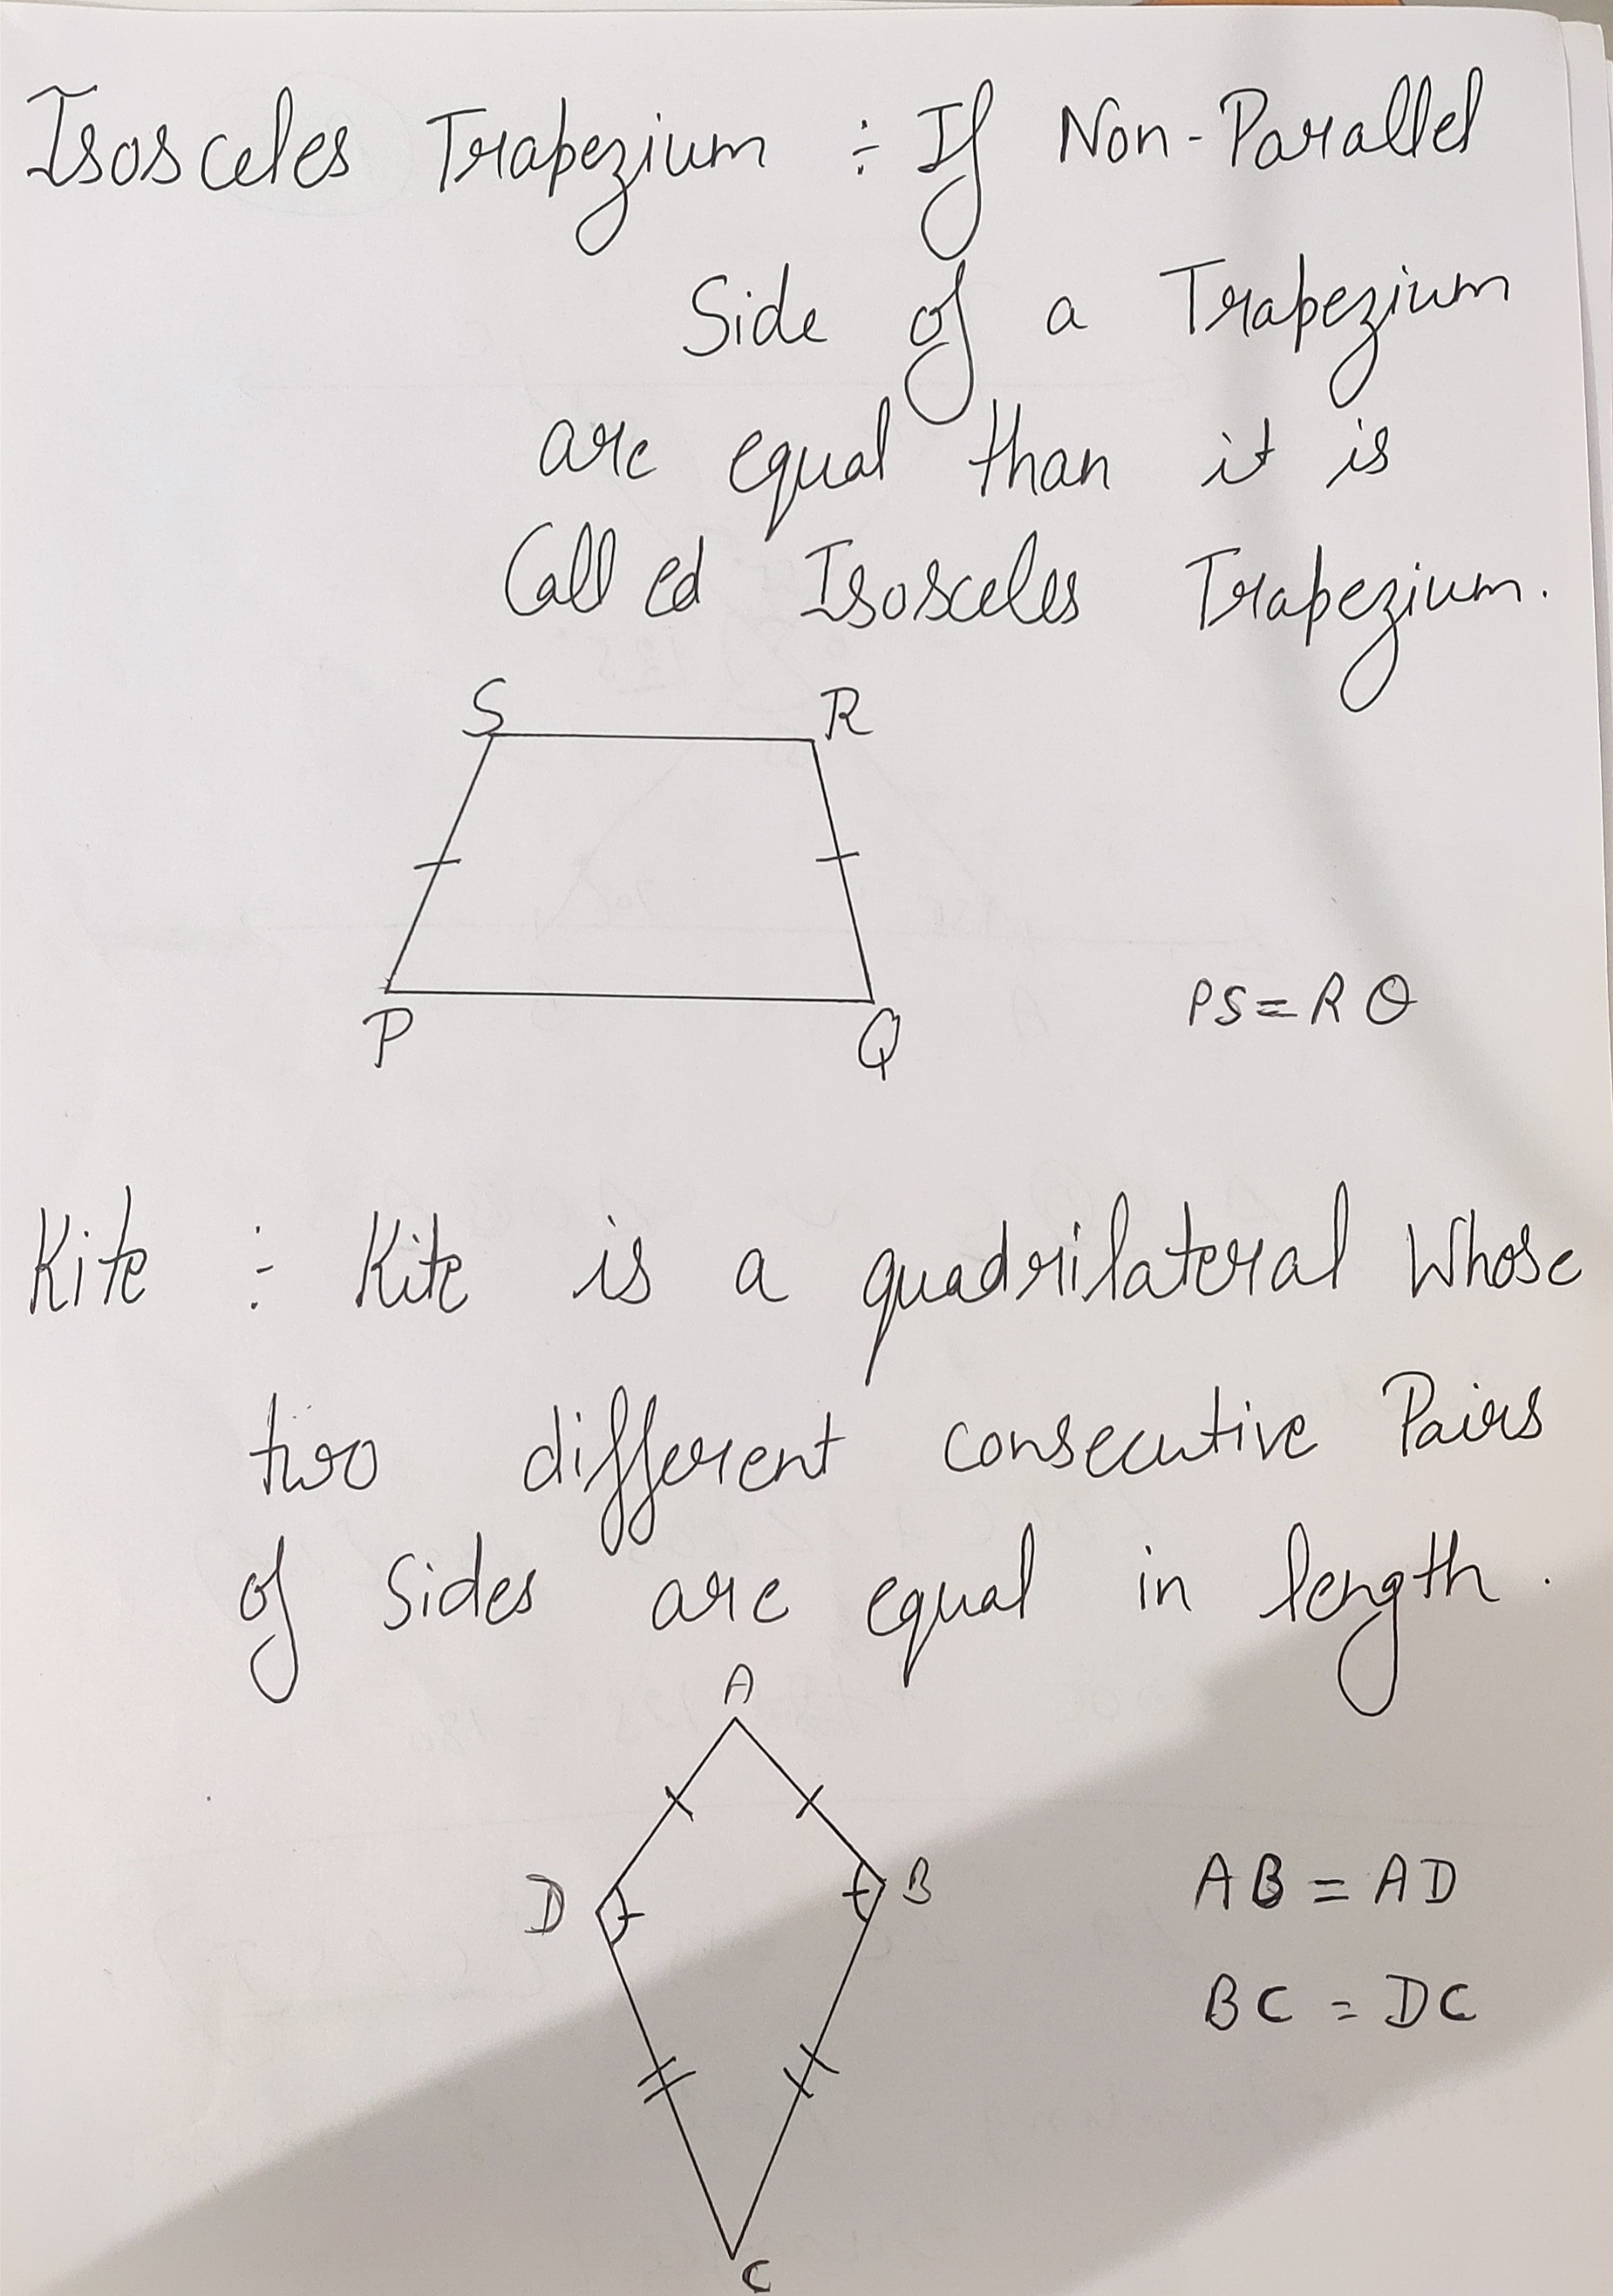 Isosceles Trapezium ÷ If Non-Parallel
Side of a Trapezium
are equal than it is
Called Isosceles Trapezium.
S R
P Q
PS = RQ
Kite ÷ Kite is a quadrilateral Whose
two different consecutive Pairs
of Sides are equal in length.
A
D B
AB = AD
BC = DC
C